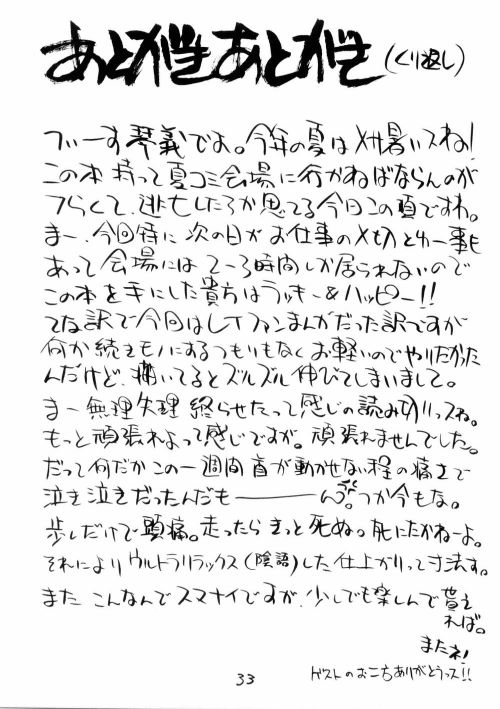 あとがきあとがき(くり返し)
つぃーす琴義でよ。今年の夏はメサ暑いスね!
この本持って夏コミ会場に行かねばならんのが
つらくて、逃亡したろか思てる今日この頃ですわ。
まー、今回特に次の日がお仕事の〆切とゆー事も
あって会場には2〜3時間しか居られないので
この本を手にした貴方はラッキー&ハッピー!!
てな訳で今回はLTファンまんがだった訳ですが
何か続きモノにするつもりもなくお軽いのでやりたかった
んだけど、描いてるとズルズル伸びてしまいまして。
まー無理矢理終らせたって感じの読み切りっスね。
もっと頑張れよって感じですが。頑張れませんでした。
だって何だかこの一週間首が動かせない程の痛さで
泣き泣きだったんだも――――ん。つか今もな。
歩しだけで頭痛。走ったらきっと死ぬ。死にたかねーよ。
それによりウルトラリラックス(陰語)した仕上がりって寸法す。
またこんなんでスマナイですが、少しでも楽しんで貰え
れば。
またネ!
ゲストのお二方ありがとうっス!!
33